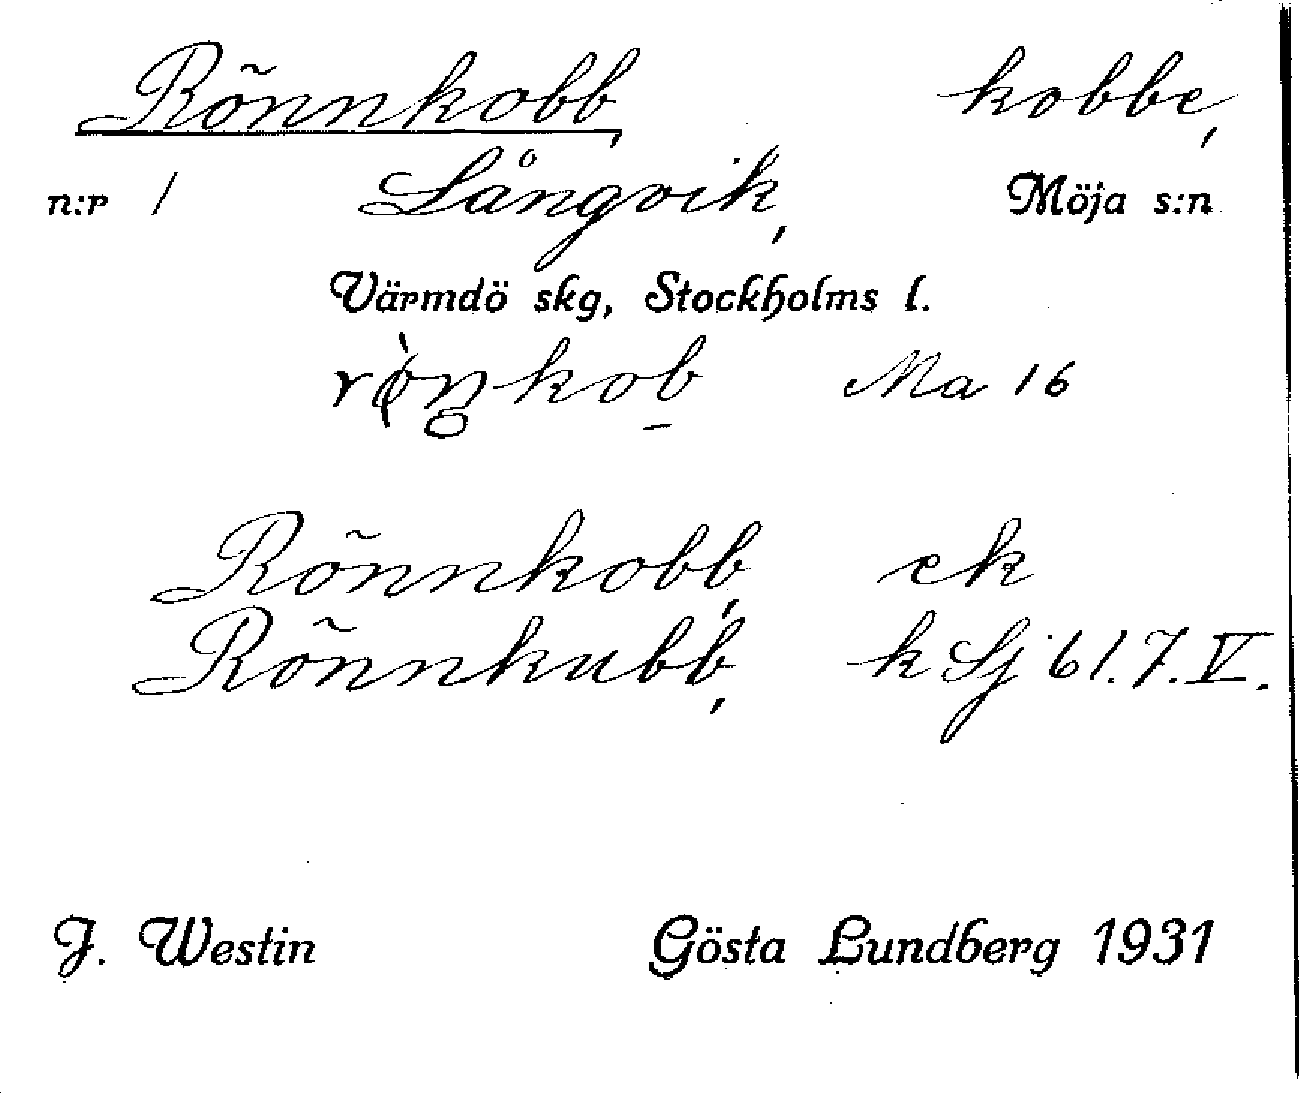 Rõnnkobb, kobbe,
n:r 1 Långvik, Möja s:n
Värmdö skg, Stockholms l.
Ma 16
Rõnnkobb, ek
Rõnnkubb, k Sj 61.7.V.
J. Westin Gösta Lundberg 1931